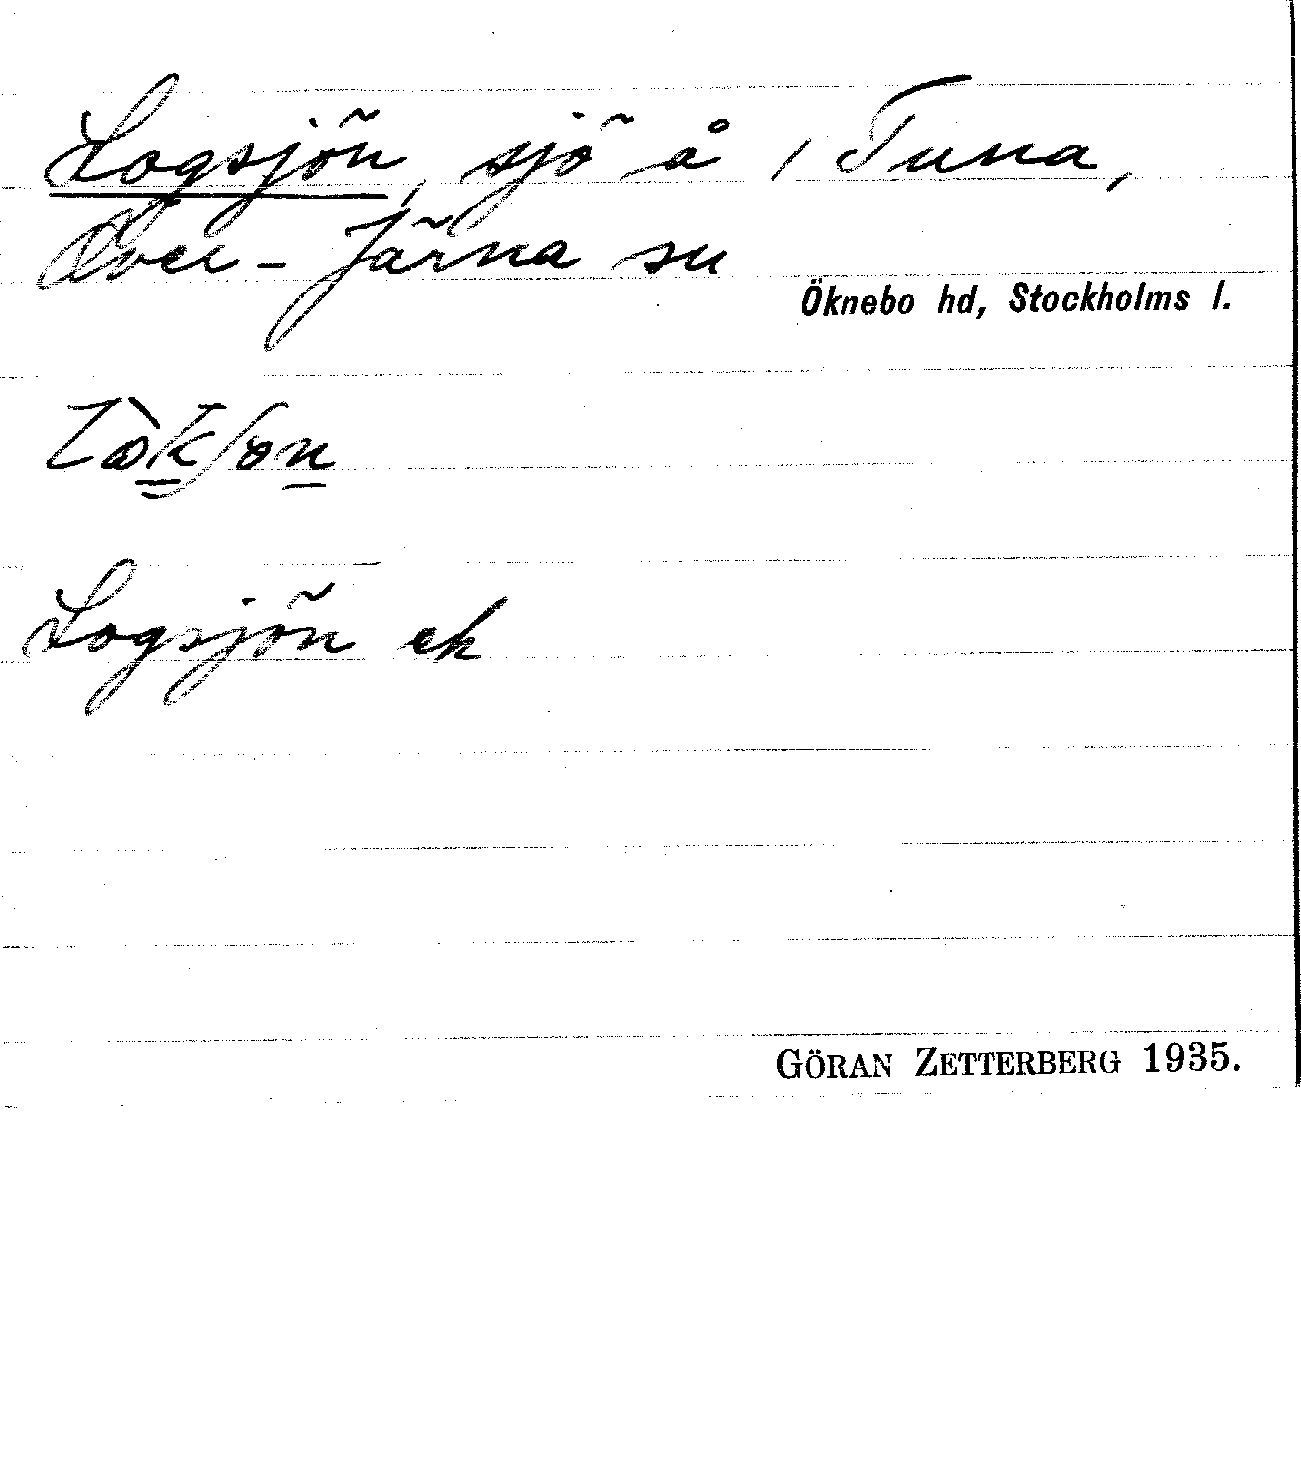 Logsjön, sjö å 1 Tuna,
Över-Järna sn
Öknebo hd, Stockholms l.
Logsjön ek
GÖRAN ZETTERBERG 1935.